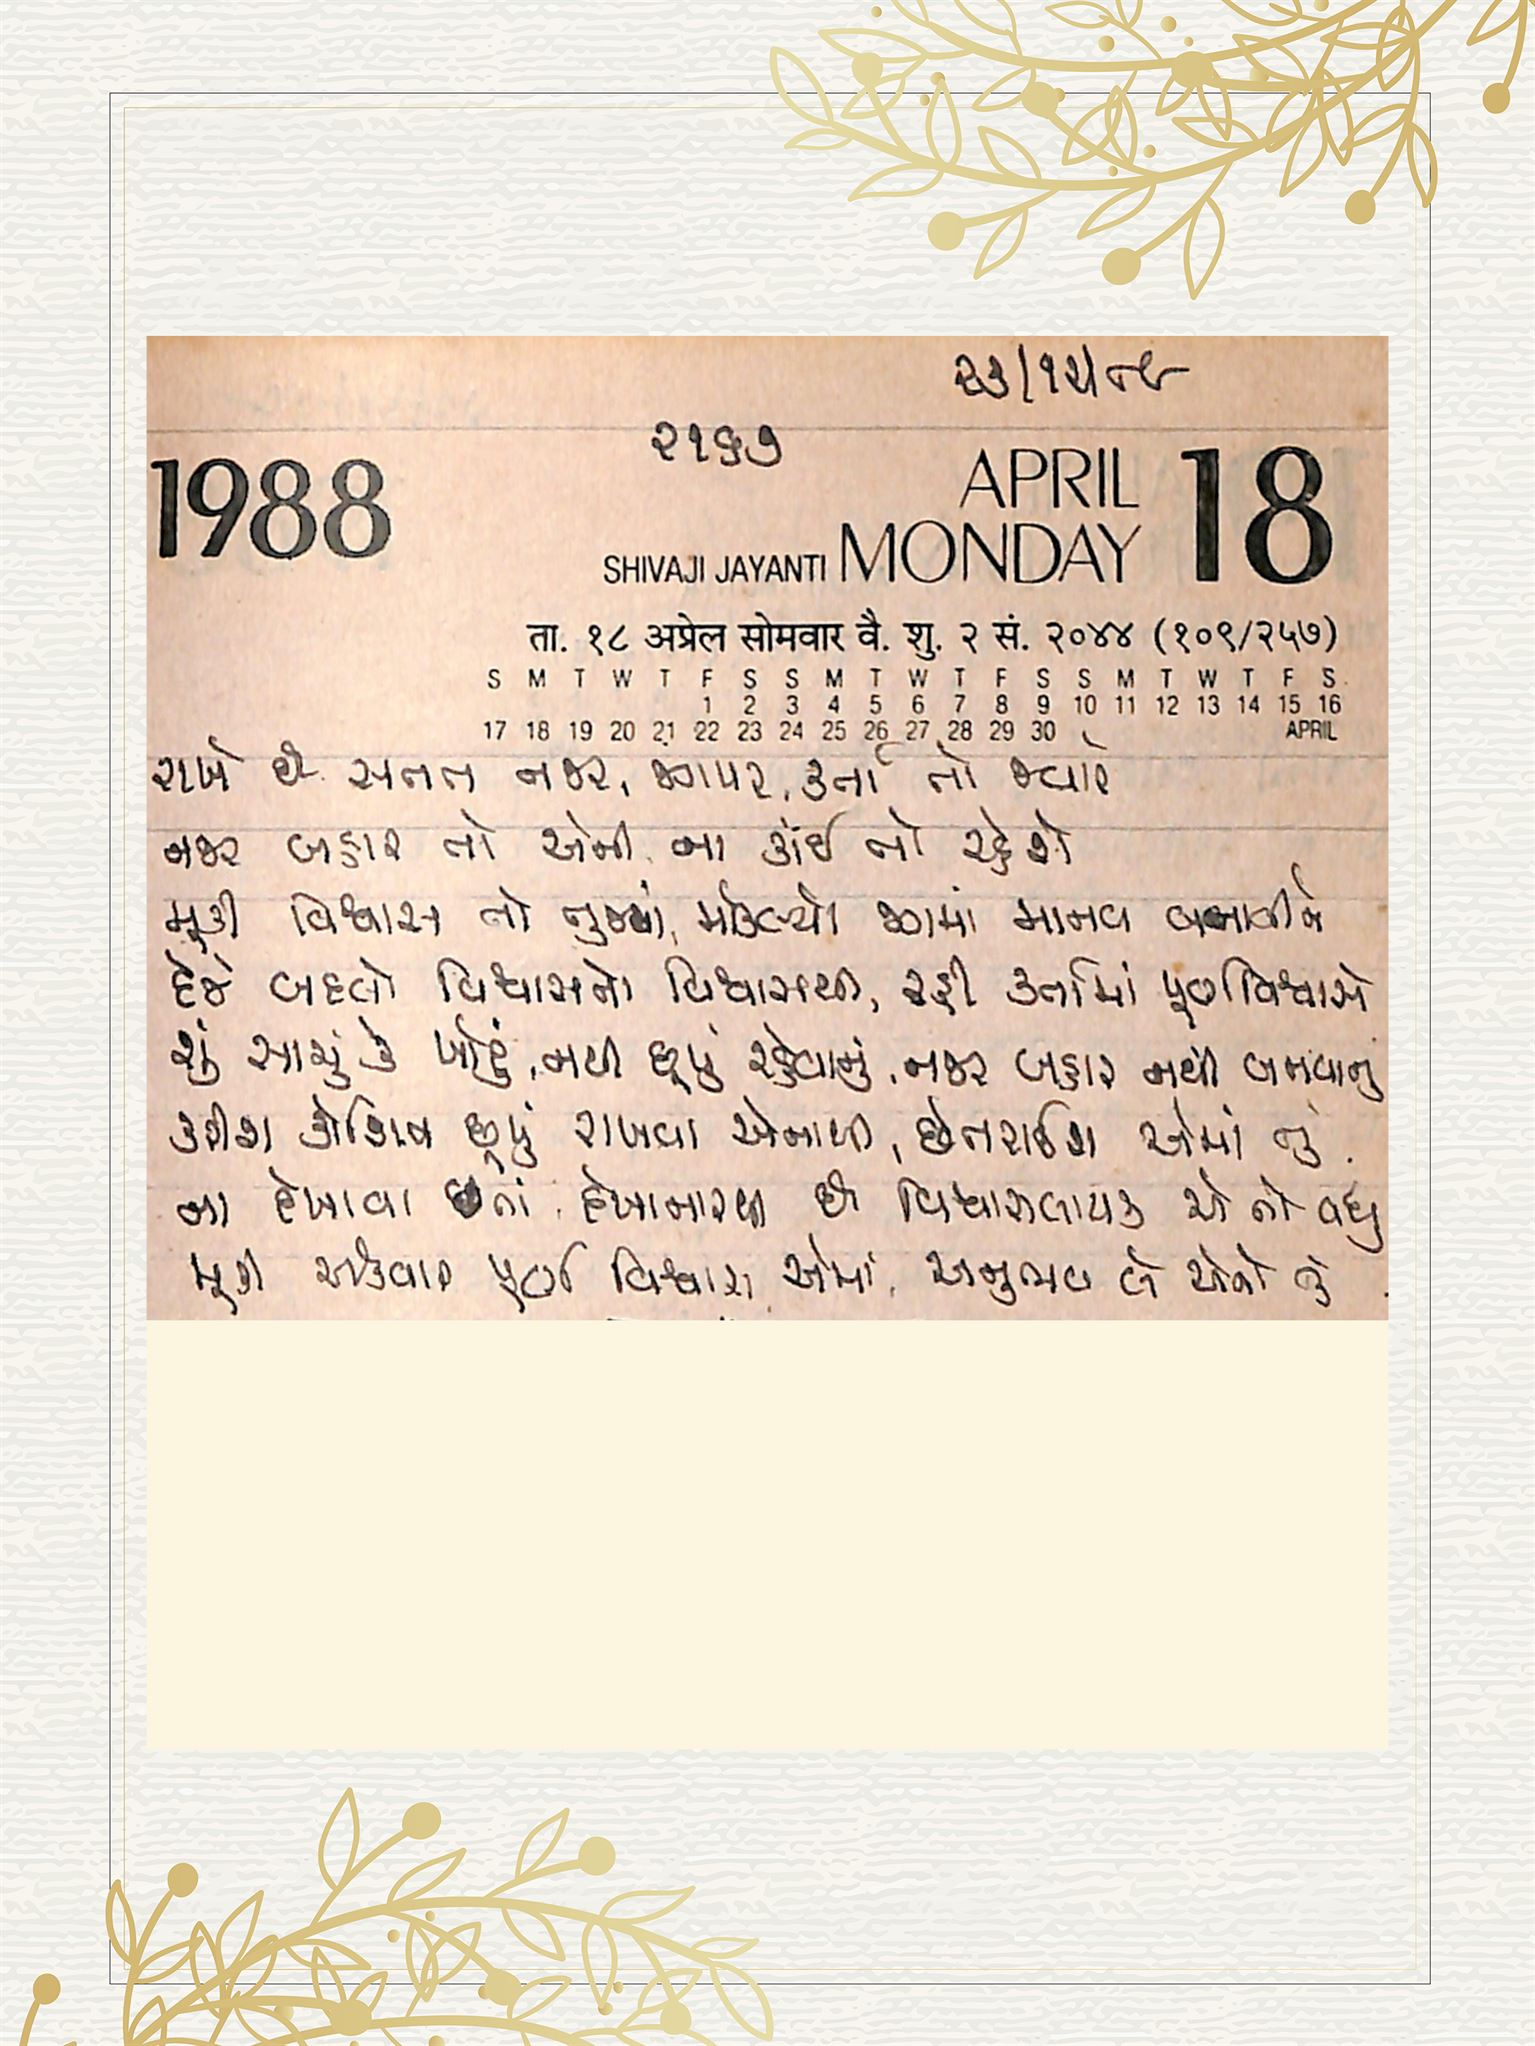 ૨૩/૧૨/૮૯
૨૧૬૭
1988
APRIL
MONDAY 18
SHIVAJI JAYANTI
ता. १८ अप्रेल सोमवार वै. शु. २ सं. २०४४ (१०९/२५७)
S M T W T F S S M T W T F S S M T W T F S
1 2 3 4 5 6 7 8 9 10 11 12 13 14 15 16
17 18 19 20 21 22 23 24 25 26 27 28 29 30 APRIL
રાખે છે સતત નજર, જગપર, કર્તા તો જ્યારે
નજર બહાર તો એની ના કાંઈ તો રહેશે
મૂકી વિશ્વાસ તો તુજમાં, મોકલ્યો જગમાં માનવ બનાવીને
દેજે બદલો વિશ્વાસનો વિશ્વાસથી, રહી કર્તામાં પૂર્ણ વિશ્વાસે
શું સાચું કે ખોટું, નથી છૂપું રહેવાનું, નજર બહાર નથી બનવાનું
કરીશ કોશિશ છૂપું રાખવા એનાથી, છેતરાઈશ એમાં તું
ના દેખાવા છતાં, દેખાનારથી છે વિશ્વાસલાયક એ તો વધુ
મૂકી એકવાર પૂર્ણ વિશ્વાસ એમાં, અનુભવ લે એનો તું